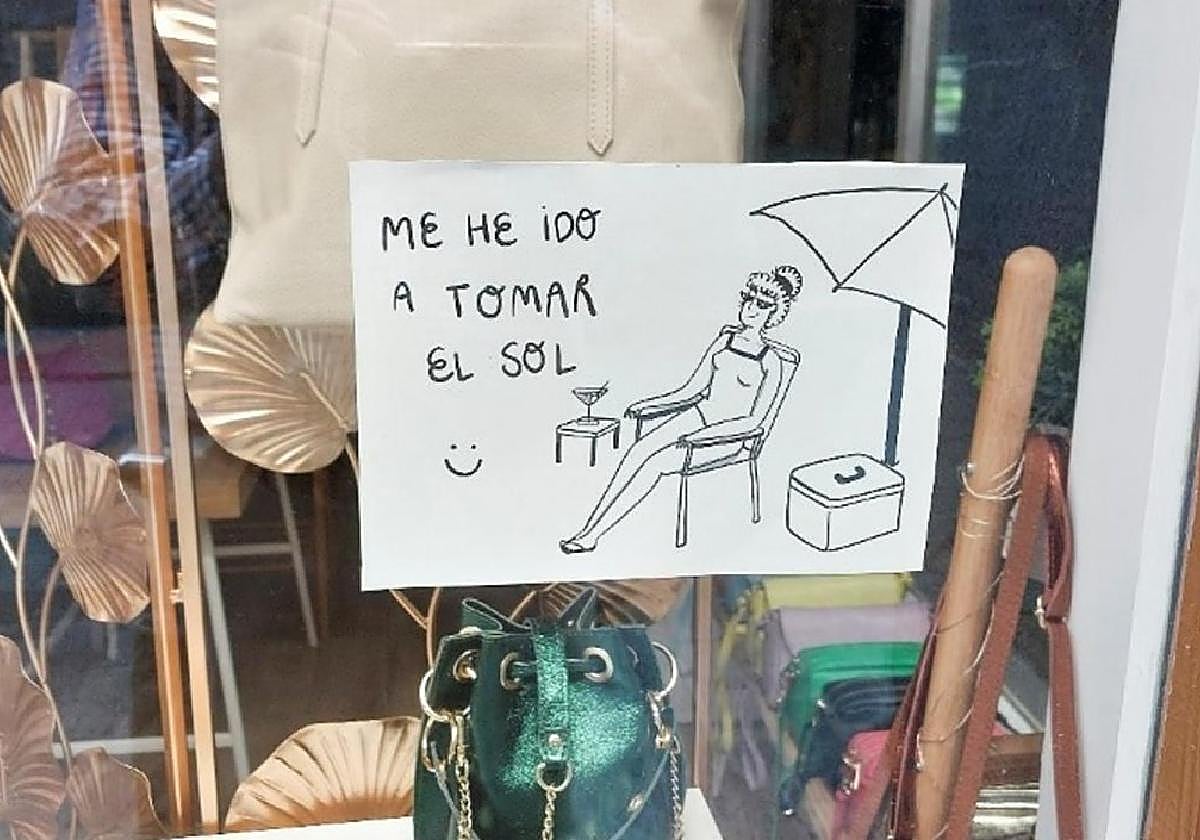 ME HE iDO
A TOMAR
EL SOL